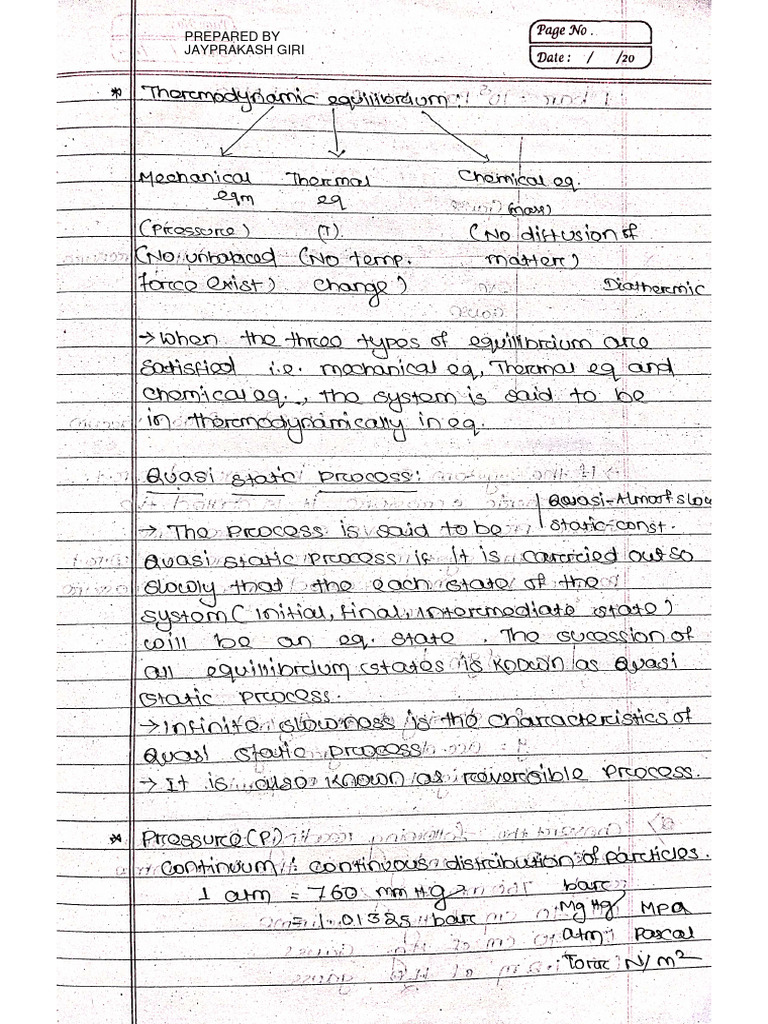 PREPARED BY
JAYPRAKASH GIRI
Page No .
Date : / /20
* Thermodynamic equilibrium :
Mechanical Thermal Chemical eq.
eqm eq (mass)
(Pressure) (T) (No diffusion of
(No unbalaced (No temp. matter)
force exist) change) Diathermic
→ When the three types of equilibrium are
satisfied i.e. mechanical eq, Thermal eq and
chemical eq., the system is said to be
in thermodynamically in eq.
Quasi static process:
Quasi-Almost slow
→ The process is said to be static-const.
Quasi static process if it is carried out so
slowly that the each state of the
system (initial, final, intermediate state)
will be an eq. state. The sucession of
all equilibrium states is known as Quasi
static process.
→ Infinite slowness is the characteristics of
Quasi static process
→ It is also known as reversible process.
* Pressure (P)
Continuum : continuous distribution of particles.
1 atm = 760 mm Hg bar
= 1.01325 bar Mg Hg MPa
atm Pascal
Torr N/m²